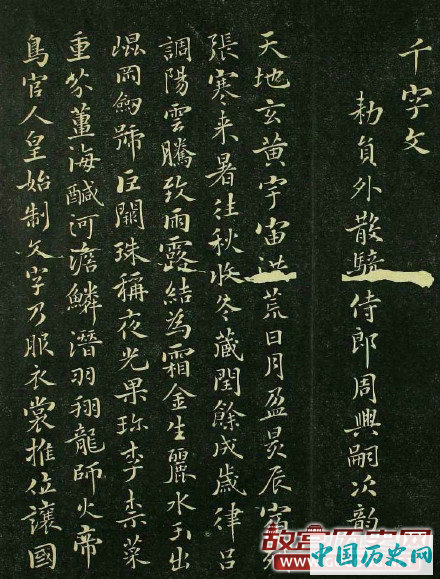 千字文
勅員外散騎侍郎周興嗣次韵
天地玄黃宇宙洪荒日月盈昃辰宿列
張寒来暑往秋收冬藏閏餘成歲律呂
調陽雲騰致雨露結為霜金生麗水玉出
崐岡劒號巨闕珠稱夜光果珍李柰菜
重芥薑海醎河淡鱗潜羽翔龍師火帝
鳥官人皇始制文字乃服衣裳推位讓國
中国历史网